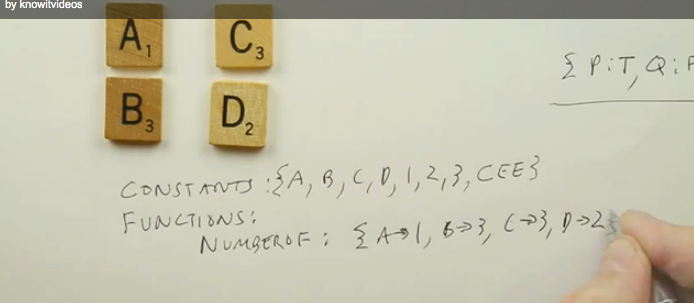 by knowitvideos
A1
C3
B3
D2
{ P:T, Q:F
CONSTANTS :{A, B, C, D, 1, 2, 3, CEE}
FUNCTIONS:
NUMBEROF : { A→1, B→3, C→3, D→2}